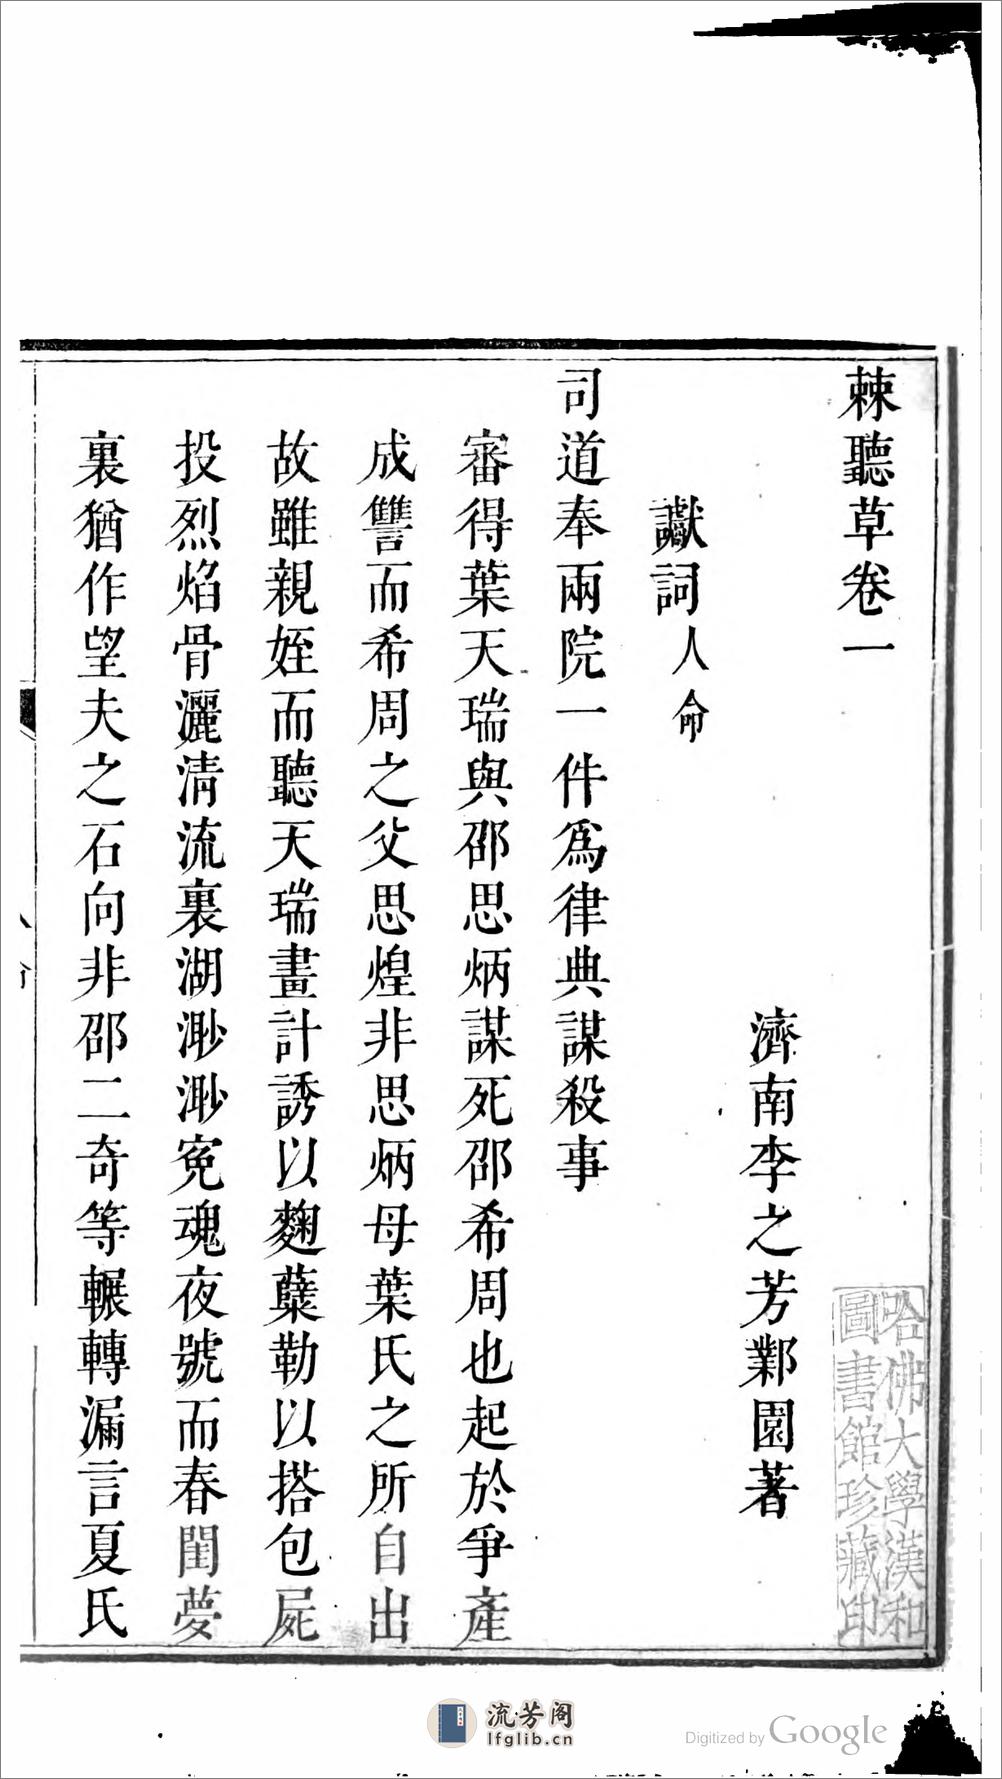 棘聽草卷一
濟南李之芳鄴園著
讞詞人命
司道奉兩院一件爲律典謀殺事
審得葉天瑞與邵思炳謀死邵希周也起於爭產
成讐而希周之父思煌非思炳母葉氏之所自出
故雖親姪而聽天瑞畫計誘以麴蘖勒以搭包屍
投烈焰骨灑清流裏湖渺渺寃魂夜號而春閨夢
裏猶作望夫之石向非邵二奇等輾轉漏言夏氏
哈佛大學漢和
圖書館珍藏印
流芳阁
lfglib.cn
Digitized by Google